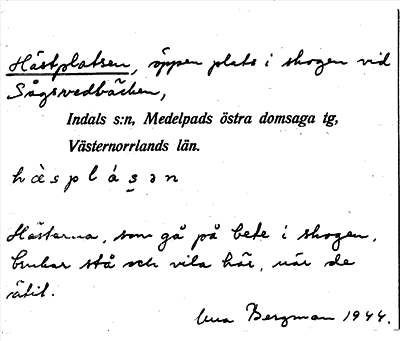 Hästplatsen, öppen plats i skogen vid
Sågsvedbäcken,
Indals s:n, Medelpads östra domsaga tg,
Västernorrlands län.
hὰsplás̠ən
Hästarna, som gå på bete i skogen,
brukar stå och vila här, när de
ätit.
Bergman 1944.